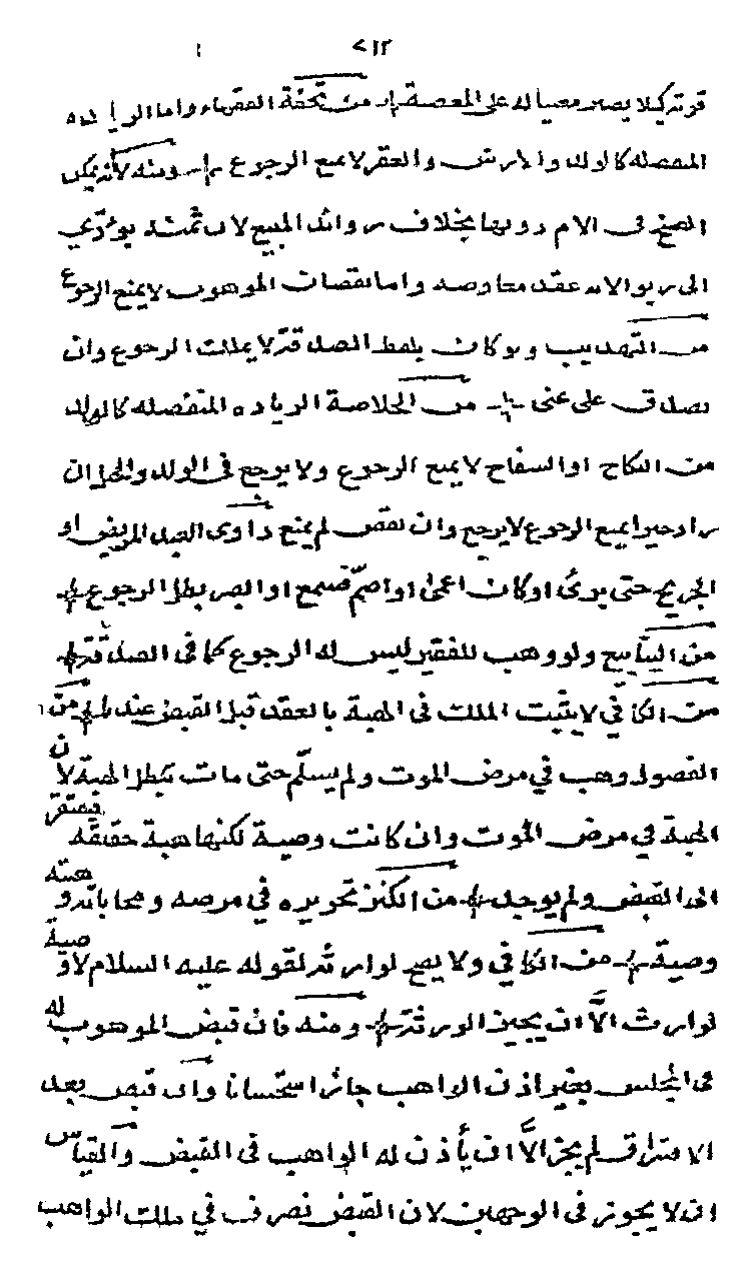 ٧١٢
قرتد كيلا يصير معينا له على المعصية من تحفة الفقهاء واما الزوائد
المنفصله كالولد والارش والعقر لا يمنع الرجوع ومنه لانه يمكن
الفسخ في الام دونها بخلاف زوائد المبيع لان ثمنه يودي
الى ربوا لانه عقد معاوضه واما نقصان الموهوب لا يمنع الرجوع
من التهذيب ولو كان بلفظ الصدقة لا يملك الرجوع وان
تصدق على غنى من الخلاصة الزياده المنفصله كالولد
من النكاح او السفاح لا يمنع الرجوع ولا يرجع في الولد والحل ان
زاد خيرا يمنع الرجوع لا يرجع وان نقص لم يمنع داوى العبد المريض او
الجريح حتى برئ او كان اعمى او اصم فسمع او ابصر بطل الرجوع
من الينابيع ولو وهب للفقير ليس له الرجوع كما في الصدقة
من الكافي لا يثبت الملك في الهبة بالعقد قبل القبض عندنا من
الفصول وهب في مرض الموت ولم يسلم حتى مات تبطل الهبة لان
الهبة في مرض الموت وان كانت وصية لكنها هبة حقيقه فيفتقر
الى القبض ولم يوجد من الكنز تحريره في مرضه ومحاباته وهبته
وصية من الكافي ولا يصح لوارثه لقوله عليه السلام لا وصية
لوارث الّا ان يجيز الورثة ومنه فان قبض الموهوب له
في المجلس بغير اذن الواهب جاز استحسانا وان قبض بعد
الافتراق لم يجز الّا ان يأذن له الواهب في القبض والقياس
ان لا يجوز في الوجهين لان القبض تصرف في ملك الواهب